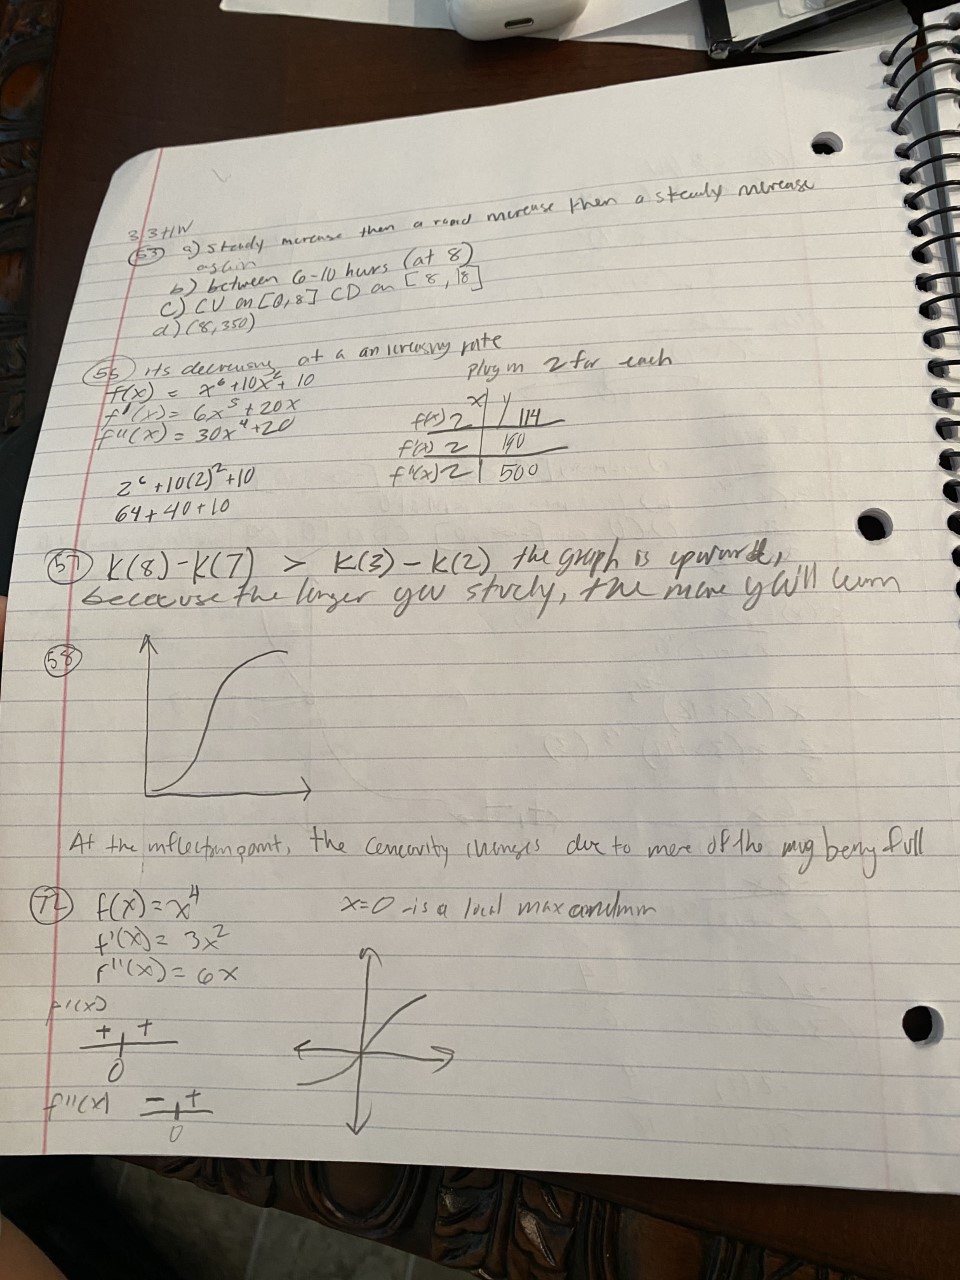 3.3 HW
(53) a) steady increase then a rapid increase then a steady increase
again
b) between 6-10 hours (at 8)
c) CU on [0,8] CD on [8,18]
d) (8,350)
(55) its decreasing at a an icreasing rate
f(x) = x⁶+10x²+10
plug in 2 for each
f'(x) = 6x⁵+20x
f''(x) = 30x⁴+20
x | y
f(x) 2 | 114
f'(x) 2
f''(x) 2 | 500
2⁶+10(2)²+10
64+40+10
(57) K(8)-K(7) > K(3)-K(2) the graph is upward,
because the longer you study, the more you'll learn
(58)
At the inflection point, the concavity changes due to more of the mug being full
f(x)=x⁴
x=0 is a local max
f'(x)= 3x²
f''(x)= 6x
f'(x)
+ +
0
f''(x) - +
0